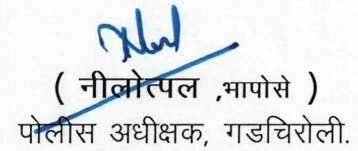 ( नीलोत्पल ,भापोसे )
पोलीस अधीक्षक, गडचिरोली.